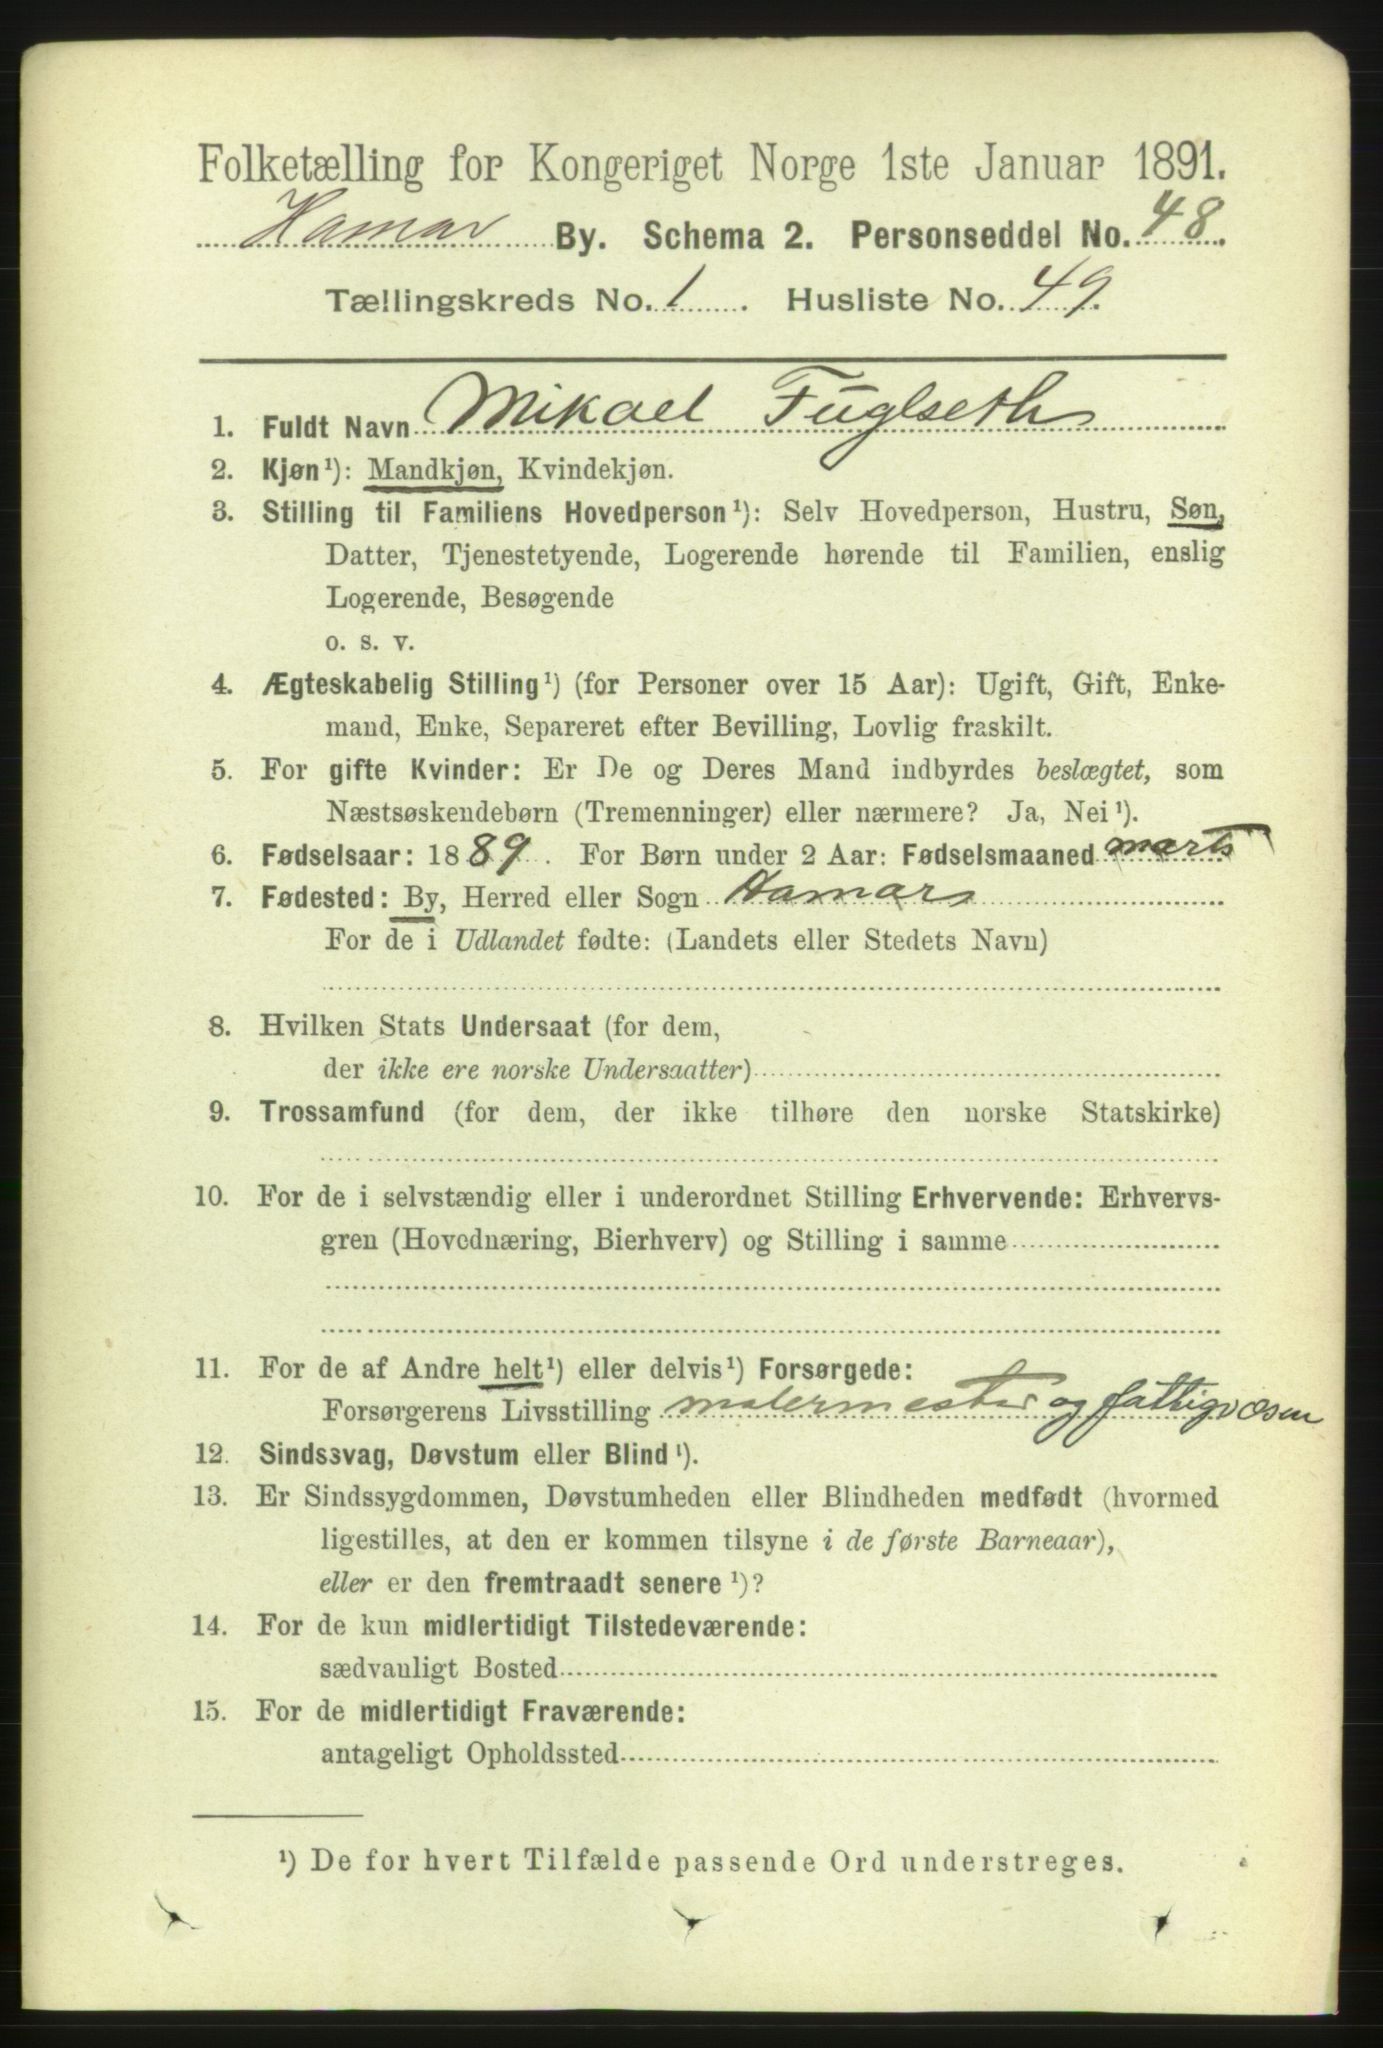 Folketælling for Kongeriget Norge 1ste Januar 1891.
Hamar By. Schema 2. Personseddel No. 48.
Tællingskreds No. 1. Husliste No. 49.
1. Fuldt Navn Mikael Fuglseth
2. Kjøn¹): Mandkjøn, Kvindekjøn.
3. Stilling til Familiens Hovedperson¹): Selv Hovedperson, Hustru, Søn,
Datter, Tjenestetyende, Logerende hørende til Familien, enslig
Logerende, Besøgende
o. s. v.
4. Ægteskabelig Stilling¹) (for Personer over 15 Aar): Ugift, Gift, Enke-
mand, Enke, Separeret efter Bevilling, Lovlig fraskilt.
5. For gifte Kvinder: Er De og Deres Mand indbyrdes beslægtet, som
Næstsøskendebørn (Tremenninger) eller nærmere? Ja, Nei¹).
6. Fødselsaar: 1889. For Børn under 2 Aar: Fødselsmaaned marts
7. Fødested: By, Herred eller Sogn Hamar
For de i Udlandet fødte: (Landets eller Stedets Navn)
8. Hvilken Stats Undersaat (for dem,
der ikke ere norske Undersaatter)
9. Trossamfund (for dem, der ikke tilhøre den norske Statskirke)
10. For de i selvstændig eller i underordnet Stilling Erhvervende: Erhvervs-
gren (Hovednæring, Bierhverv) og Stilling i samme
11. For de af Andre helt¹) eller delvis¹) Forsørgede:
Forsørgerens Livsstilling malermester og fattigvæsen
12. Sindssvag, Døvstum eller Blind¹).
13. Er Sindssygdommen, Døvstumheden eller Blindheden medfødt (hvormed
ligestilles, at den er kommen tilsyne i de første Barneaar),
eller er den fremtraadt senere¹)?
14. For de kun midlertidigt Tilstedeværende:
sædvanligt Bosted
15. For de midlertidigt Fraværende:
antageligt Opholdssted
¹) De for hvert Tilfælde passende Ord understreges.